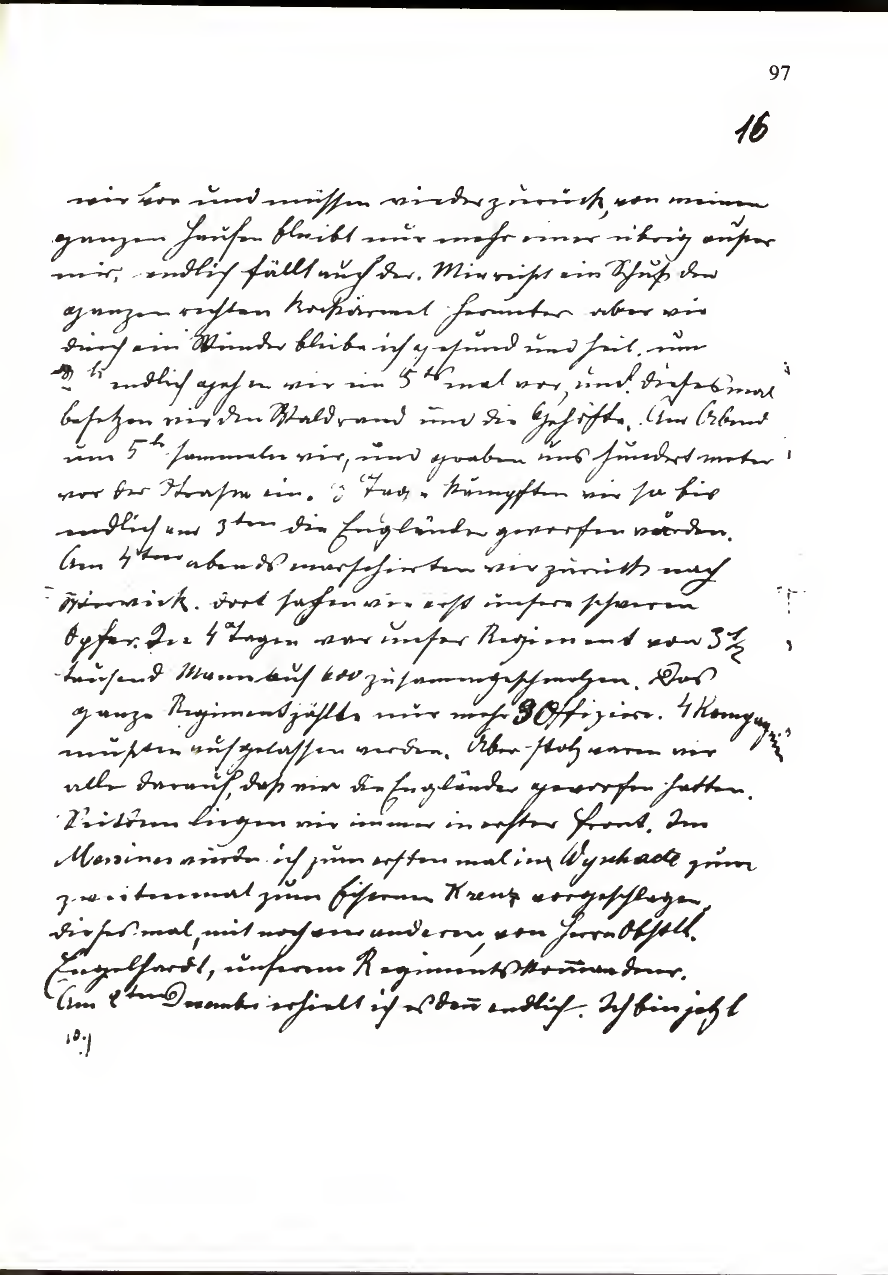 97
16
wir vor und müssen wieder zurück, von meinem
ganzen Haufen bleibt nur mehr einer übrig außer
mir, endlich fällt auch der. Mir reißt ein Schuß den
ganzen rechten Rockärmel herunter aber wie
durch ein Wunder bleibe ich gesund und heil. um
2 h endlich gehen wir ein 5tes mal vor, und dieses mal
besetzen wir den Waldrand und die Gehöfte. Am Abend
um 5 h sammeln wir, und graben uns hundert meter
vor der Straße ein. 3 Tage kämpften wir so bis
endlich am 3ten die Engländer geworfen wurden.
Am 4ten abends marschierten wir zurück nach
Werwick. dort sahen wir erst unsere schweren
Opfer. In 4 Tagen war unser Regiment von 3 1/2
tausend Mann auf 600 zusammgeschmolzen. Das
ganze Regiment zählte nur mehr 3 Offiziere. 4 Kompagnien
mußten aufgelassen werden. Aber stolz waren wir
alle darauf, daß wir die Engländer geworfen hatten.
Seitdem liegen wir immer in erster Front. In
Messines wurde ich zum ersten mal in Wyschaete zum
zweitenmal zum Eisernen Kreuz vorgeschlagen,
dieses mal, mit noch anderen, von Herrn Obstltt.
Engelhardt, unserem Regimentskommandeur.
Am 2ten Dezember erhielt ich es dann endlich. Ich bin jetzt